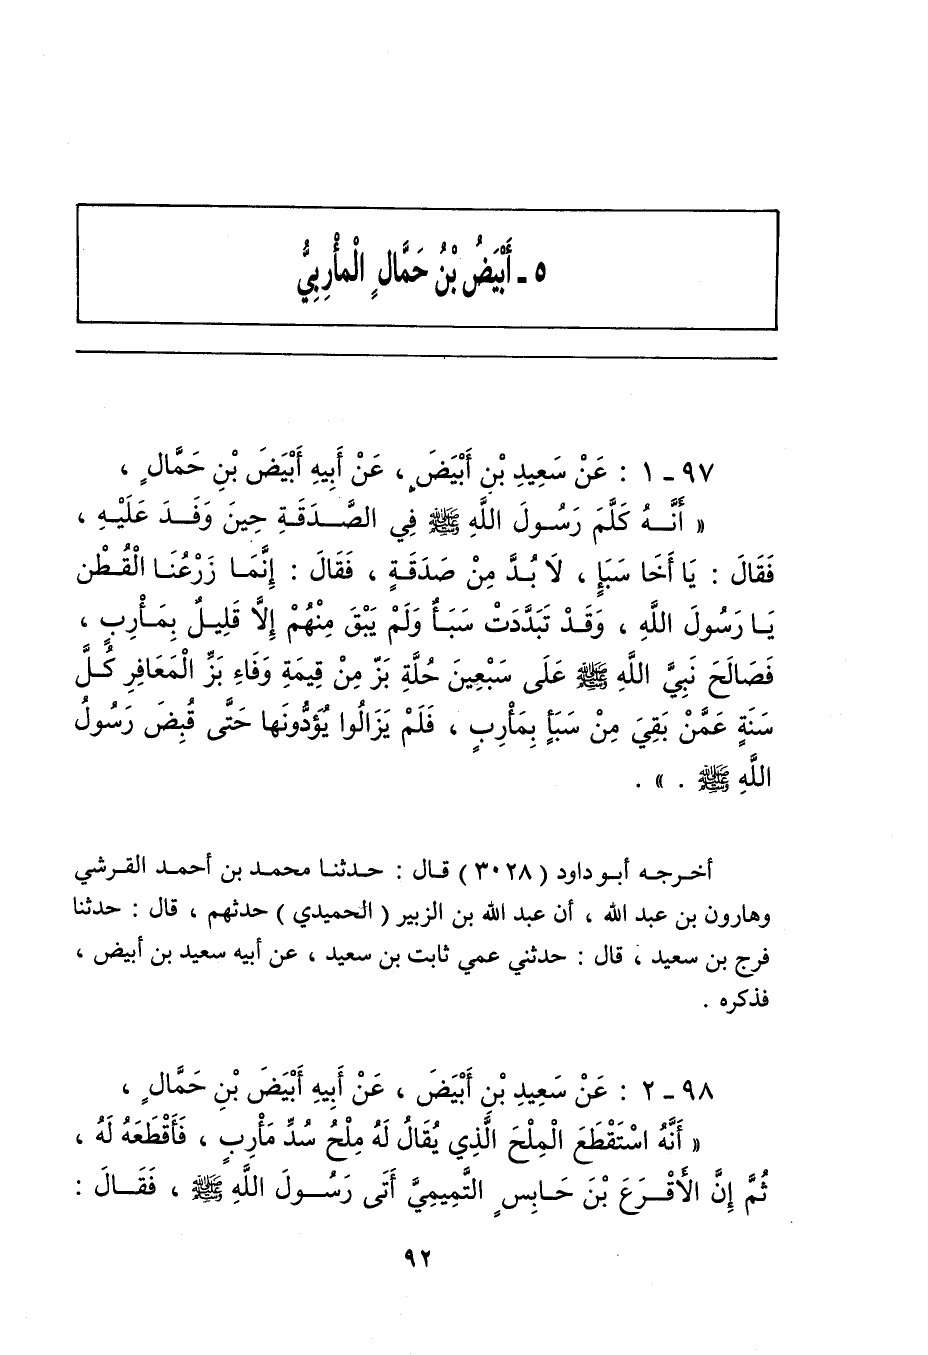 ٥ ـ أَبْيَضُ بْنُ حَمَّالٍ الْمأْرِبِيُّ
٩٧ ـ ١ : عَنْ سَعِيدِ بْنِ أَبْيَضَ ، عَنْ أَبِيهِ أَبْيَضَ بْنِ حَمَّالٍ ،
« أَنَّهُ كَلَّمَ رَسُولَ اللَّهِ ﷺ فِي الصَّدَقَةِ حِينَ وَفَدَ عَلَيْهِ ،
فَقَالَ : يَا أَخَا سَبَإٍ ، لَا بُدَّ مِنْ صَدَقَةٍ ، فَقَالَ : إِنَّمَا زَرْعُنَا الْقُطْن
يَا رَسُولَ اللَّهِ ، وَقَدْ تَبَدَّدَتْ سَبَأٌ وَلَمْ يَبْقَ مِنْهُمْ إِلَّا قَلِيلٌ بِمَأْرِبٍ ،
فَصَالَحَ نَبِيَّ اللَّهِ ﷺ عَلَى سَبْعِينَ حُلَّةِ بَزّ مِنْ قِيمَةِ وَفَاءِ بَزِّ الْمَعَافِرِ كُلَّ
سَنَةٍ عَمَّنْ بَقِيَ مِنْ سَبَأٍ بِمَأْرِبٍ ، فَلَمْ يَزَالُوا يُؤَدُّونَها حَتَّى قُبِضَ رَسُولُ
اللَّهِ ﷺ . » .
أخرجه أبو داود ( ٣٠٢٨ ) قال : حدثنا محمد بن أحمد القرشي
وهارون بن عبد الله ، أن عبد الله بن الزبير ( الحميدي ) حدثهم ، قال : حدثنا
فرج بن سعيد ، قال : حدثني عمي ثابت بن سعيد ، عن أبيه سعيد بن أبيض ،
فذكره .
٩٨ ـ ٢ : عَنْ سَعِيدِ بْنِ أَبْيَضَ ، عَنْ أَبِيهِ أَبْيَضَ بْنِ حَمَّالٍ ،
« أَنَّهُ اسْتَقْطَعَ الْمِلْحَ الَّذِي يُقَالُ لَهُ مِلْحُ سُدِّ مَأْرِبٍ ، فَأَقْطَعَهُ لَهُ ،
ثُمَّ إِنَّ الْأَقْرَعَ بْنَ حَابِسٍ التَّمِيمِيَّ أَتَى رَسُولَ اللَّهِ ﷺ ، فَقَالَ :
٩٢